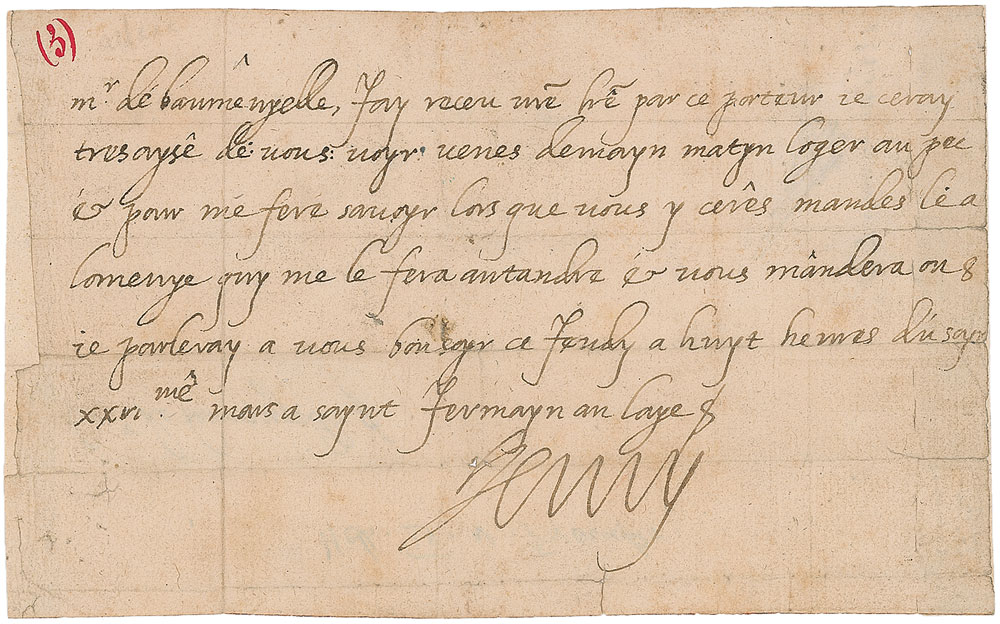 (3)
mr de baumênyelle, Jay receu vrē lrē par ce porteur ie ceray
tresaysê de vous voyr venes demayn matyn loger au pec
& pour me fere savoyr lors que vous y cerês mandes le a
lomenye quy me le fera antandre & vous mandera ou
ie parleray a vous bonsoyr ce Jeudy a huyt heures du soyr
xxvi.me mars a saynt Jermayn an laye
Henry